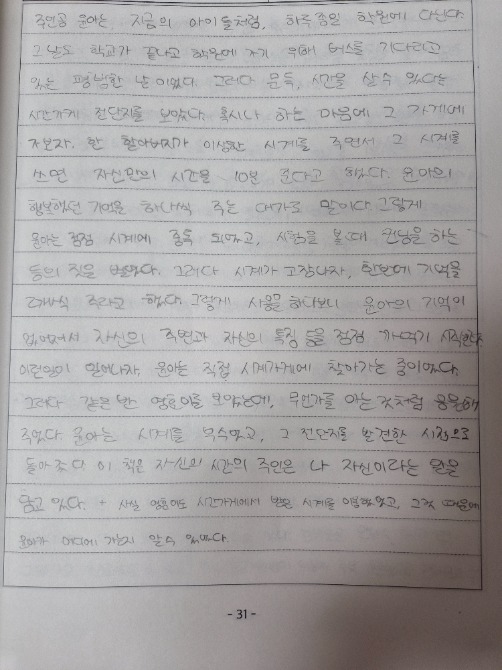 주인공 윤아는, 지금의 아이들처럼, 하루종일 학원에 다닌다
그날도 학교가 끝나고 학원에 가기 위해 버스를 기다리고
있는 평범한 날이었다. 그러다 문득, 시간을 살수 있다는
시간가게 전단지를 보았다. 혹시나 하는 마음에 그 가게에
가보자, 한 할아버지가 이상한 시계를 주면서 그 시계를
쓰면 자신만의 시간을 10분 준다고 했다. 윤아의
행복했던 기억을 하나씩 주는 대가로 말이다 그렇게
윤아는 점점 시계에 중독 되었고, 시험을 볼때 컨닝을 하는
등의 짓을 벌였다. 그러다 시계가 고장나자, 한번에 기억을
2개씩 주라고 했다. 그렇게 사용을 하다보니 윤아의 기억이
없어져서 자신의 주변과 자신의 특징 등을 점점 까먹기 시작한다
이런일이 일어나자 윤아는 직접 시계가게에 찾아가는 중이었다.
그러다 같은 반 영훈이를 보았는데, 무언가를 아는 것처럼 응원해
주었다 윤아는 시계를 부수었고, 그 전단지를 발견한 시점으로
돌아갔다 이 책은 자신의 시간의 주인은 나 자신이라는 말을
담고 있다. + 사실 영훈이도 시간가게에서 받은 시계를 이용했었고, 그것 때문에
윤아가 어디에 가는지 알수 있었다.
- 31 -